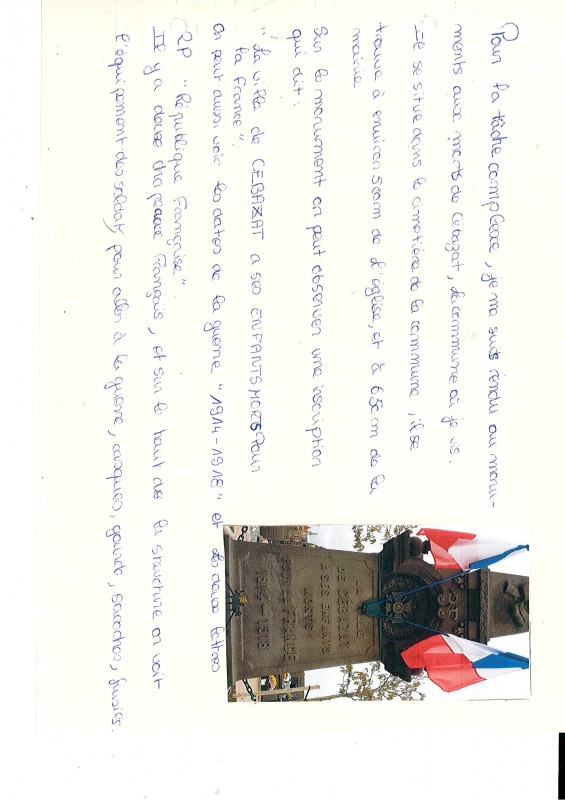 Pour la tâche complexe, je me suis rendu au monu-
ments aux morts de Cébazat, la commune où je vis.
Il se situe dans le cimetière de la commune, il se
trouve à environ 500m de l'église, et à 650m de la
mairie
Sur le monument on peut observer une inscription
qui dit :
"La ville de CEBAZAT a ses ENFANTS MORTS Pour
la France".
On peut aussi voir les dates de la guerre "1914-1918" et les deux lettres
RP "République Française".
Il y a deux drapeaux Français, et sur le haut de la structure on voit
l'équipement des soldats pour aller à la guerre, casques, gourde, sacoches, fusils.
LA VILLE
DE CEBAZAT
A SES ENFANTS
MORTS
POUR LA FRANCE
1914-1918